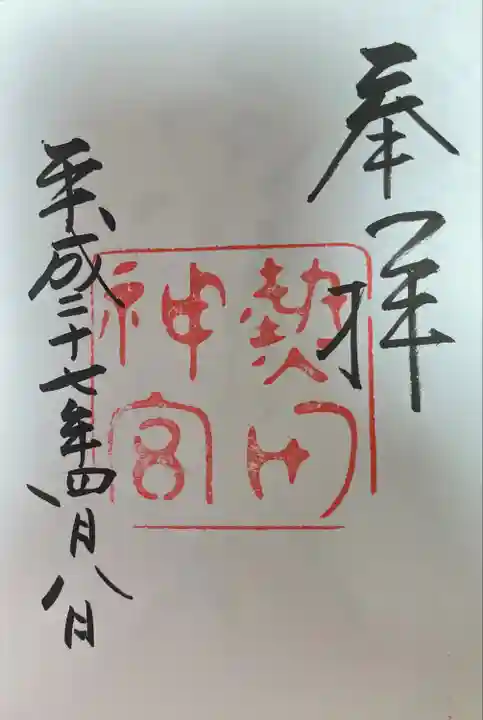 奉拝
熱田
神宮
平成二十七年四月八日